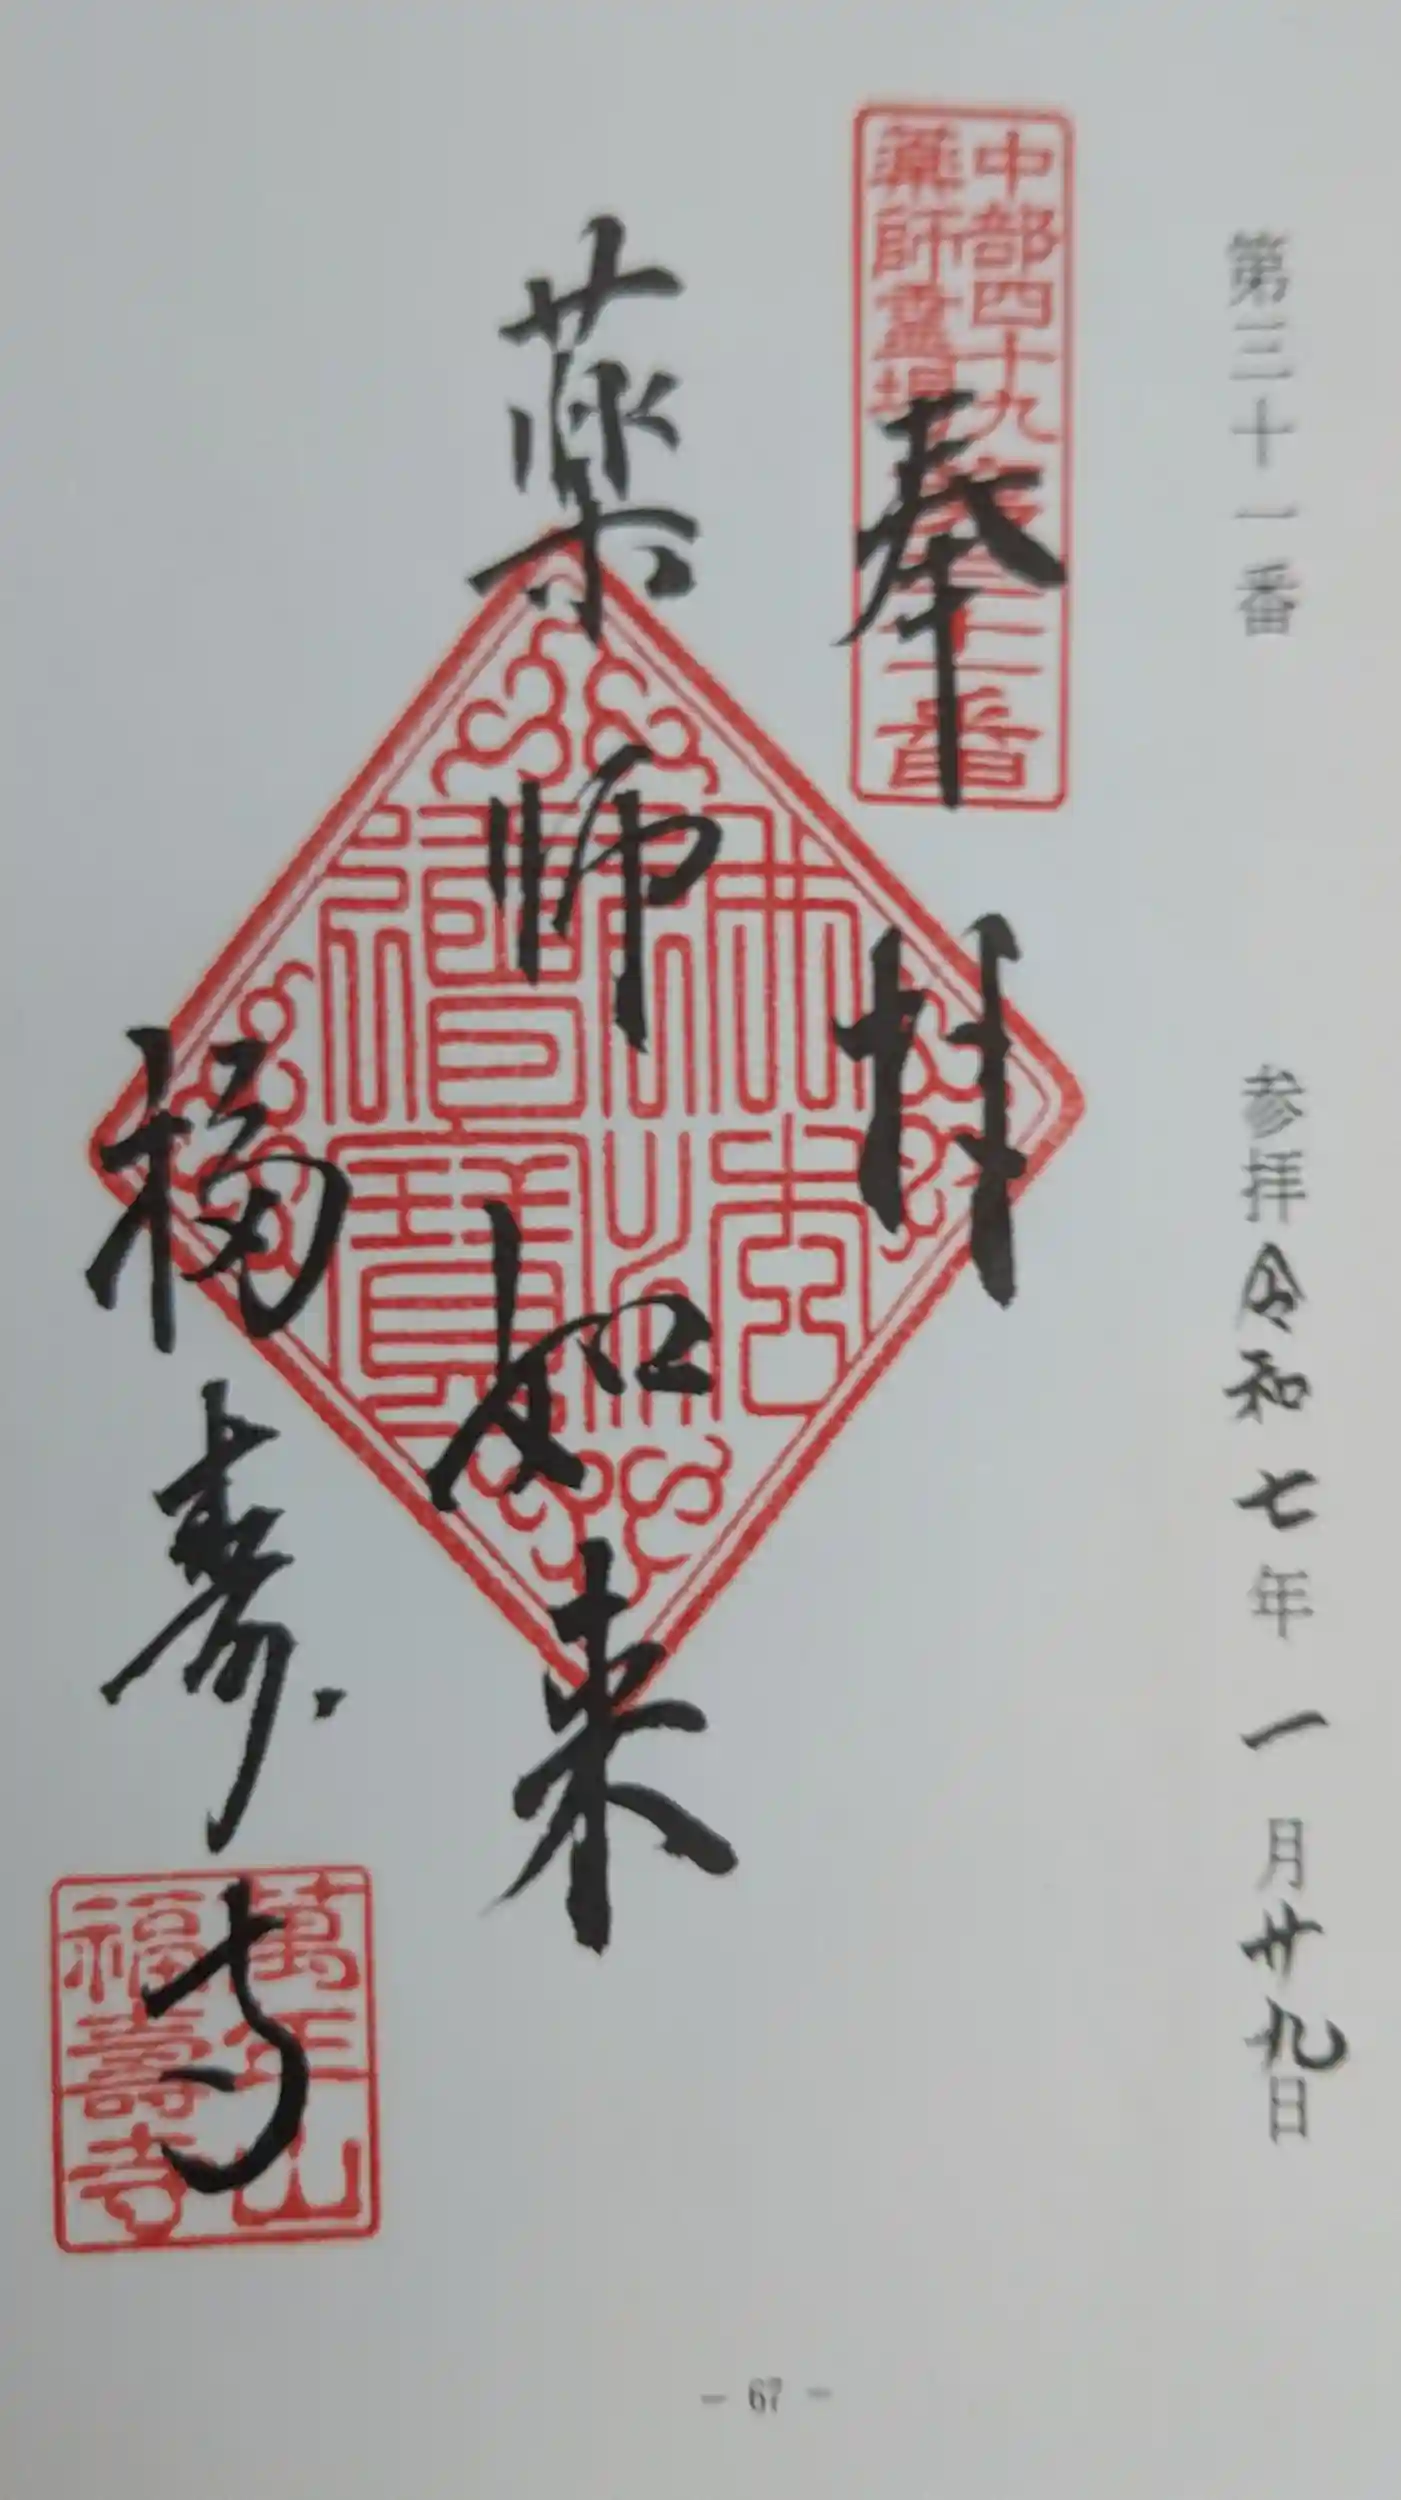 第三十一番
参拝令和七年一月廿九日
中部四十九
薬師霊場
第三十一番
奉拝
薬師如来
佛法僧寳
福寿寺
萬年山
福壽寺
- 67 -